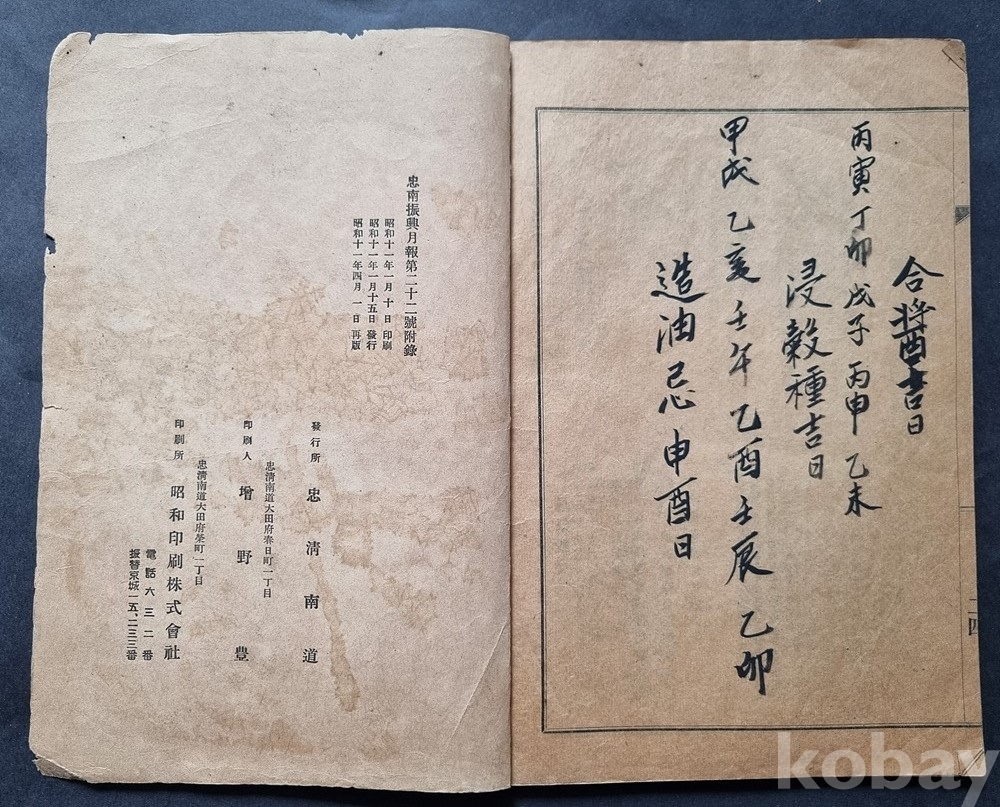 合醬酉吉日
丙寅 丁卯 戊子 丙申 乙未
浸穀種吉日
甲戌 乙亥 壬午 乙酉 壬辰 乙卯
造油忌 申酉日
二四
忠南振興月報第二十二號附錄
昭和十一年一月十日印刷
昭和十一年一月十五日發行
昭和十一年四月一日再版
發行所 忠淸南道
忠淸南道大田府春日町一丁目
印刷人 增野豊
忠淸南道大田府榮町一丁目
印刷所 昭和印刷株式會社
電話六三二番
振替京城一五、二三三番
kobay